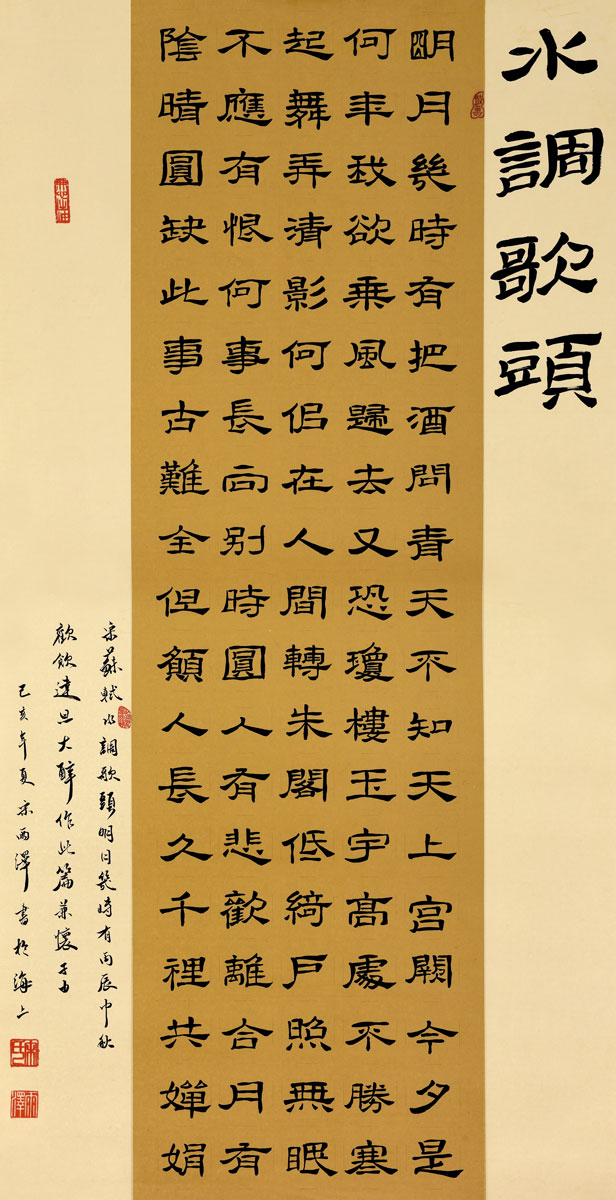 水調歌頭
明月幾時有把酒問青天不知天上宮闕今夕是
何年我欲乘風歸去又恐瓊樓玉宇高處不勝寒
起舞弄清影何佀在人間轉朱閣低綺戶照無眠
不應有恨何事長向別時圓人有悲歡離合月有
陰晴圓缺此事古難全但願人長久千裡共嬋娟
宋蘇軾水調歌頭明月幾時有丙辰中秋
歡飲達旦大醉作此篇兼懷子由
己亥年夏宋雨澤書於海上
雨澤